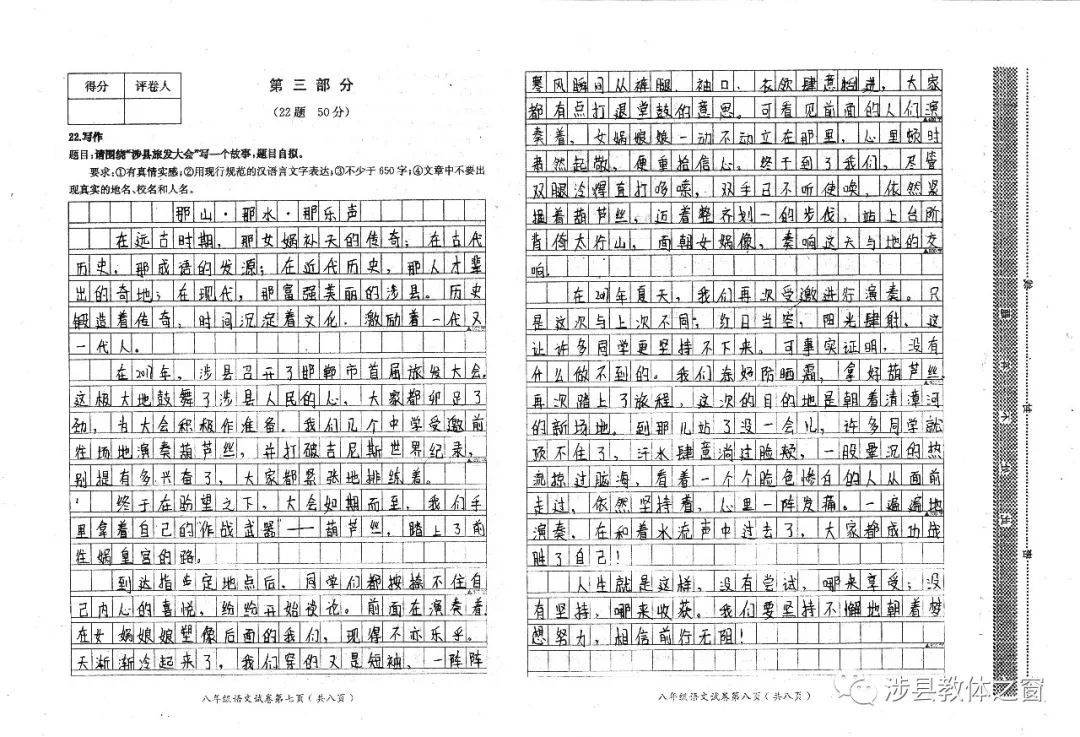 得分 评卷人
第三部分
(22题 50分)
22.写作
题目:请围绕“涉县旅发大会”写一个故事,题目自拟。
要求:①有真情实感;②用现行规范的汉语言文字表达;③不少于650字;④文章中不要出
现真实的地名、校名和人名。
那山·那水·那乐声
在远古时期,那女娲补天的传奇;在古代
历史,那成语的发源;在近代历史,那人才辈
出的奇地;在现代,那富强美丽的涉县。历史
锻造着传奇,时间沉淀着文化,激励着一代又
一代人。
在2017年,涉县召开了邯郸市首届旅发大会。
这极大地鼓舞了涉县人民的心,大家都卯足了
劲,为大会积极作准备。我们几个中学受邀前
往场地演奏葫芦丝,并打破吉尼斯世界纪录,
别提有多兴奋了,大家都紧张地排练着。
终于在盼望之下,大会如期而至,我们手
里拿着自己的“作战武器”——葫芦丝,踏上了前
往娲皇宫的路。
到达指定地点后,同学们都按捺不住自
己内心的喜悦,纷纷开始谈论。前面在演奏着,
在女娲娘娘塑像后面的我们,现得不亦乐乎。
天渐渐冷起来了,我们穿的又是短袖,一阵阵
寒风瞬间从裤腿、袖口、衣领肆意,大家
都有点打退堂鼓的意思。可看见前面的人们演
奏着,女娲娘娘一动不动立在那里,心里顿时
肃然起敬,便重拾信心。终于到了我们,尽管
双腿冷得直打哆嗦,双手已不听使唤,依然紧
握着葫芦丝,迈着整齐划一的步伐,站上台阶,
背倚太行山,面朝女娲像,奏响这天与地的交
响。
在2017年夏天,我们再次受邀进行演奏。只
是这次与上次不同;红日当空,阳光肆射,这
让许多同学更坚持不下来。可事实证明,没有
什么做不到的。我们涂好防晒霜,拿好葫芦丝,
再次踏上了旅程,这次的目的地是朝着清漳河
的新场地。到那儿站了没一会儿,许多同学就
顶不住了,汗水肆意淌过脸颊,一股晕沉的热
流掠过脑海,看着一个个脸色惨白的人从面前
走过,依然坚持着,心里一阵发痛。一遍遍地
演奏,在和着水流声中过去了,大家都成功战
胜了自己!
人生就是这样,没有尝试,哪来享受;没
有坚持,哪来收获。我们要坚持不懈地朝着梦
想努力,相信前行无阻!
八年级语文试卷第七页(共八页)
八年级语文试卷第八页(共八页)
涉县教体之窗